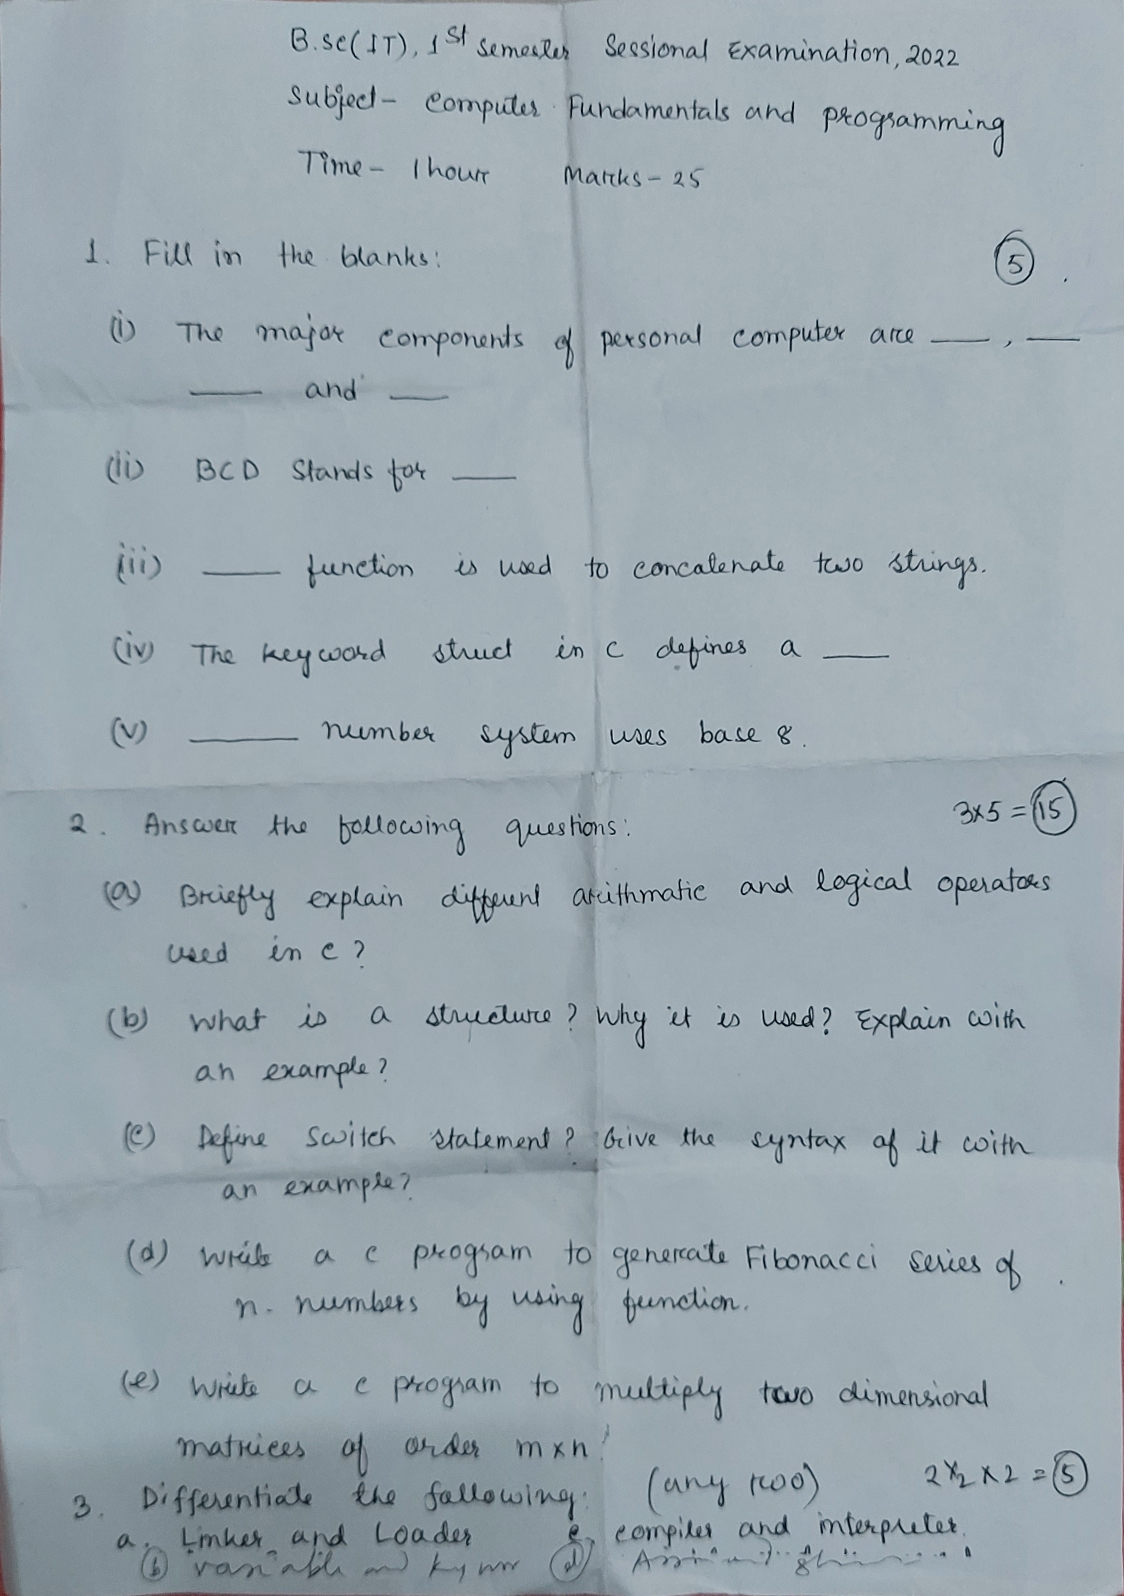 B.sc(IT), 1st semester Sessional Examination, 2022
Subject- Computer Fundamentals and programming
Time- 1 hour Marks- 25
1. Fill in the blanks: 5
(i) The major components of personal computer are ___, ___
___ and ___
(ii) BCD Stands for ___
(iii) ___ function is used to concatenate two strings.
(iv) The keyword struct in c defines a ___
(v) ___ number system uses base 8.
2. Answer the following questions: 3x5 = 15
(a) Briefly explain different arithmatic and logical operators
used in c?
(b) What is a structure? Why it is used? Explain with
an example?
(c) Define Switch statement? Give the syntax of it with
an example?
(d) Write a c program to generate Fibonacci series of
n. numbers by using function.
(e) Write a c program to multiply two dimensional
matrices of order mxn.
3. Differentiate the following: (any two) 2½ x 2 = 5
a. Linker and Loader c. compiler and interpreter.
(b) variable and (d)